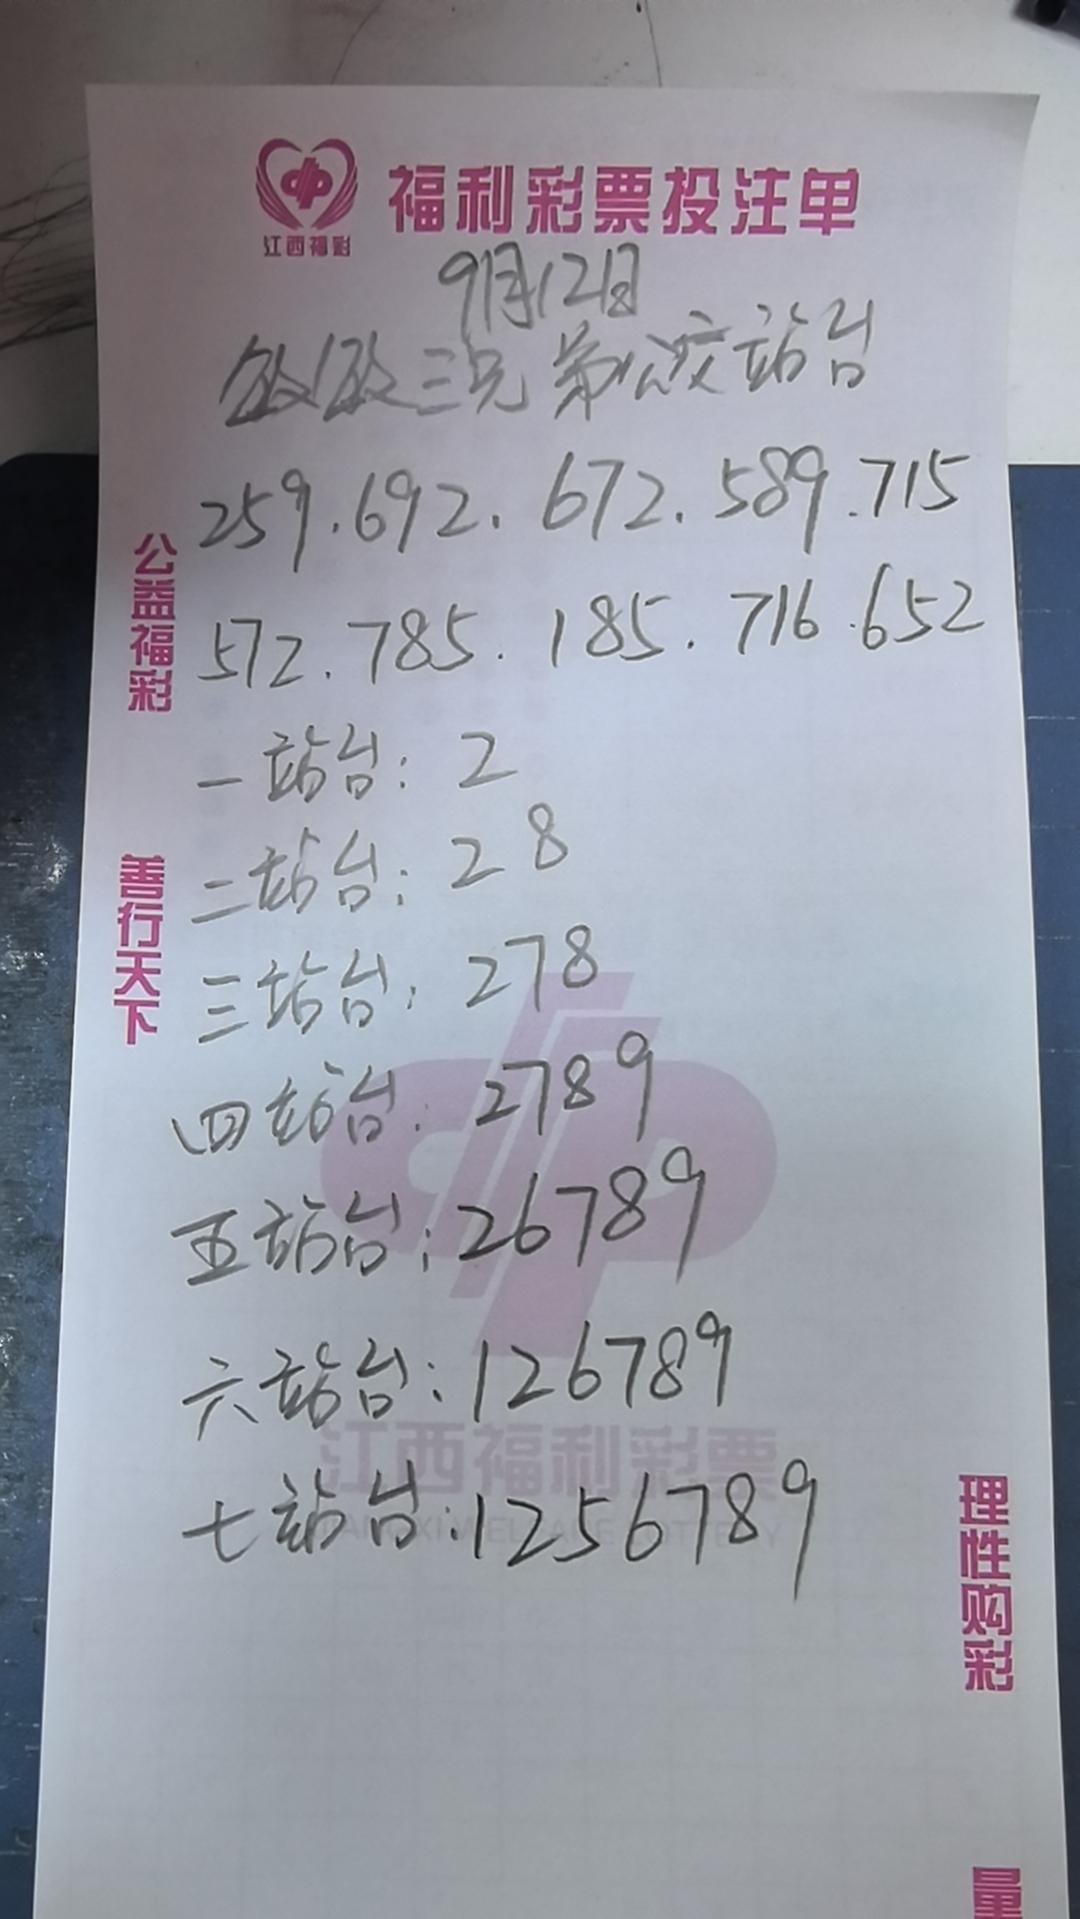 福利彩票投注单
江西福彩
9月12日
三兄弟公交站台
259.692.672.589.715
572.785.185.716.652
公益福彩
一站台:2
二站台:28
善行天下
三站台:278
四站台:2789
五站台:26789
六站台:126789
江西福利彩票
七站台:1256789
理性购彩
量